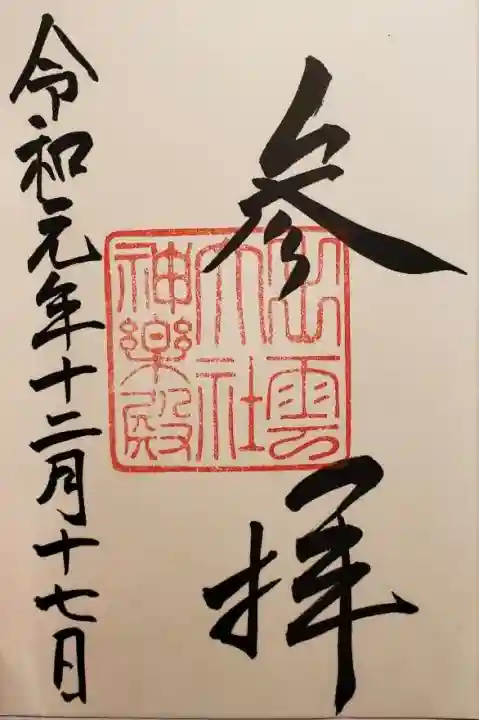 参拝
出雲
大社
神楽殿
令和元年十二月十七日